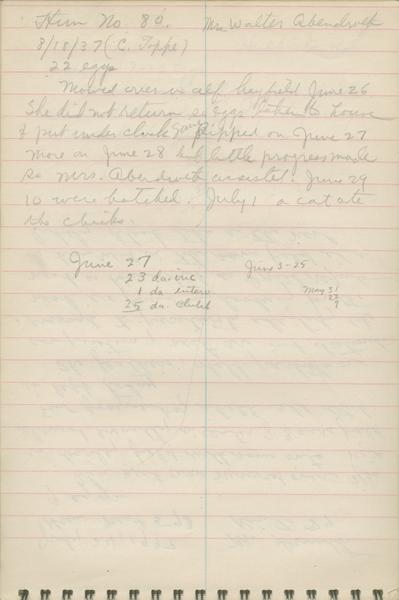 Hun No. 80. Mrs Walter Abendroth
8/18/37 (C. Toppe)
22 eggs
Mowed over in alf. hayfield June 26
She did not return so eggs taken to house
& put under cluck Some pipped on June 27
more on June 28 but little progress made
so Mrs. Abendroth assisted. June 29
10 were hatched. July 1 a cat ate
the chicks.
June 27
23 da. inc
1 da interv
25 da. clutch
June 3-25
May 31
22
9